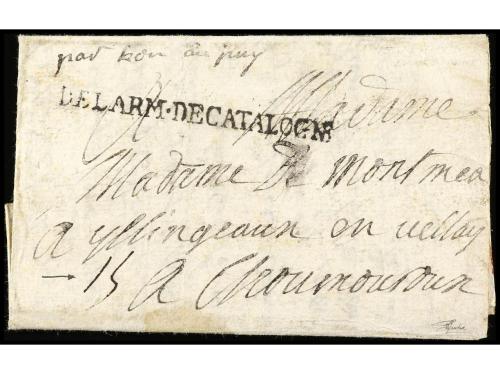 par bon du puy
DELARM·DECATALOGNE
Madame
Madame De montmea
a yssingeaux en vellay
15 a Choumouroux